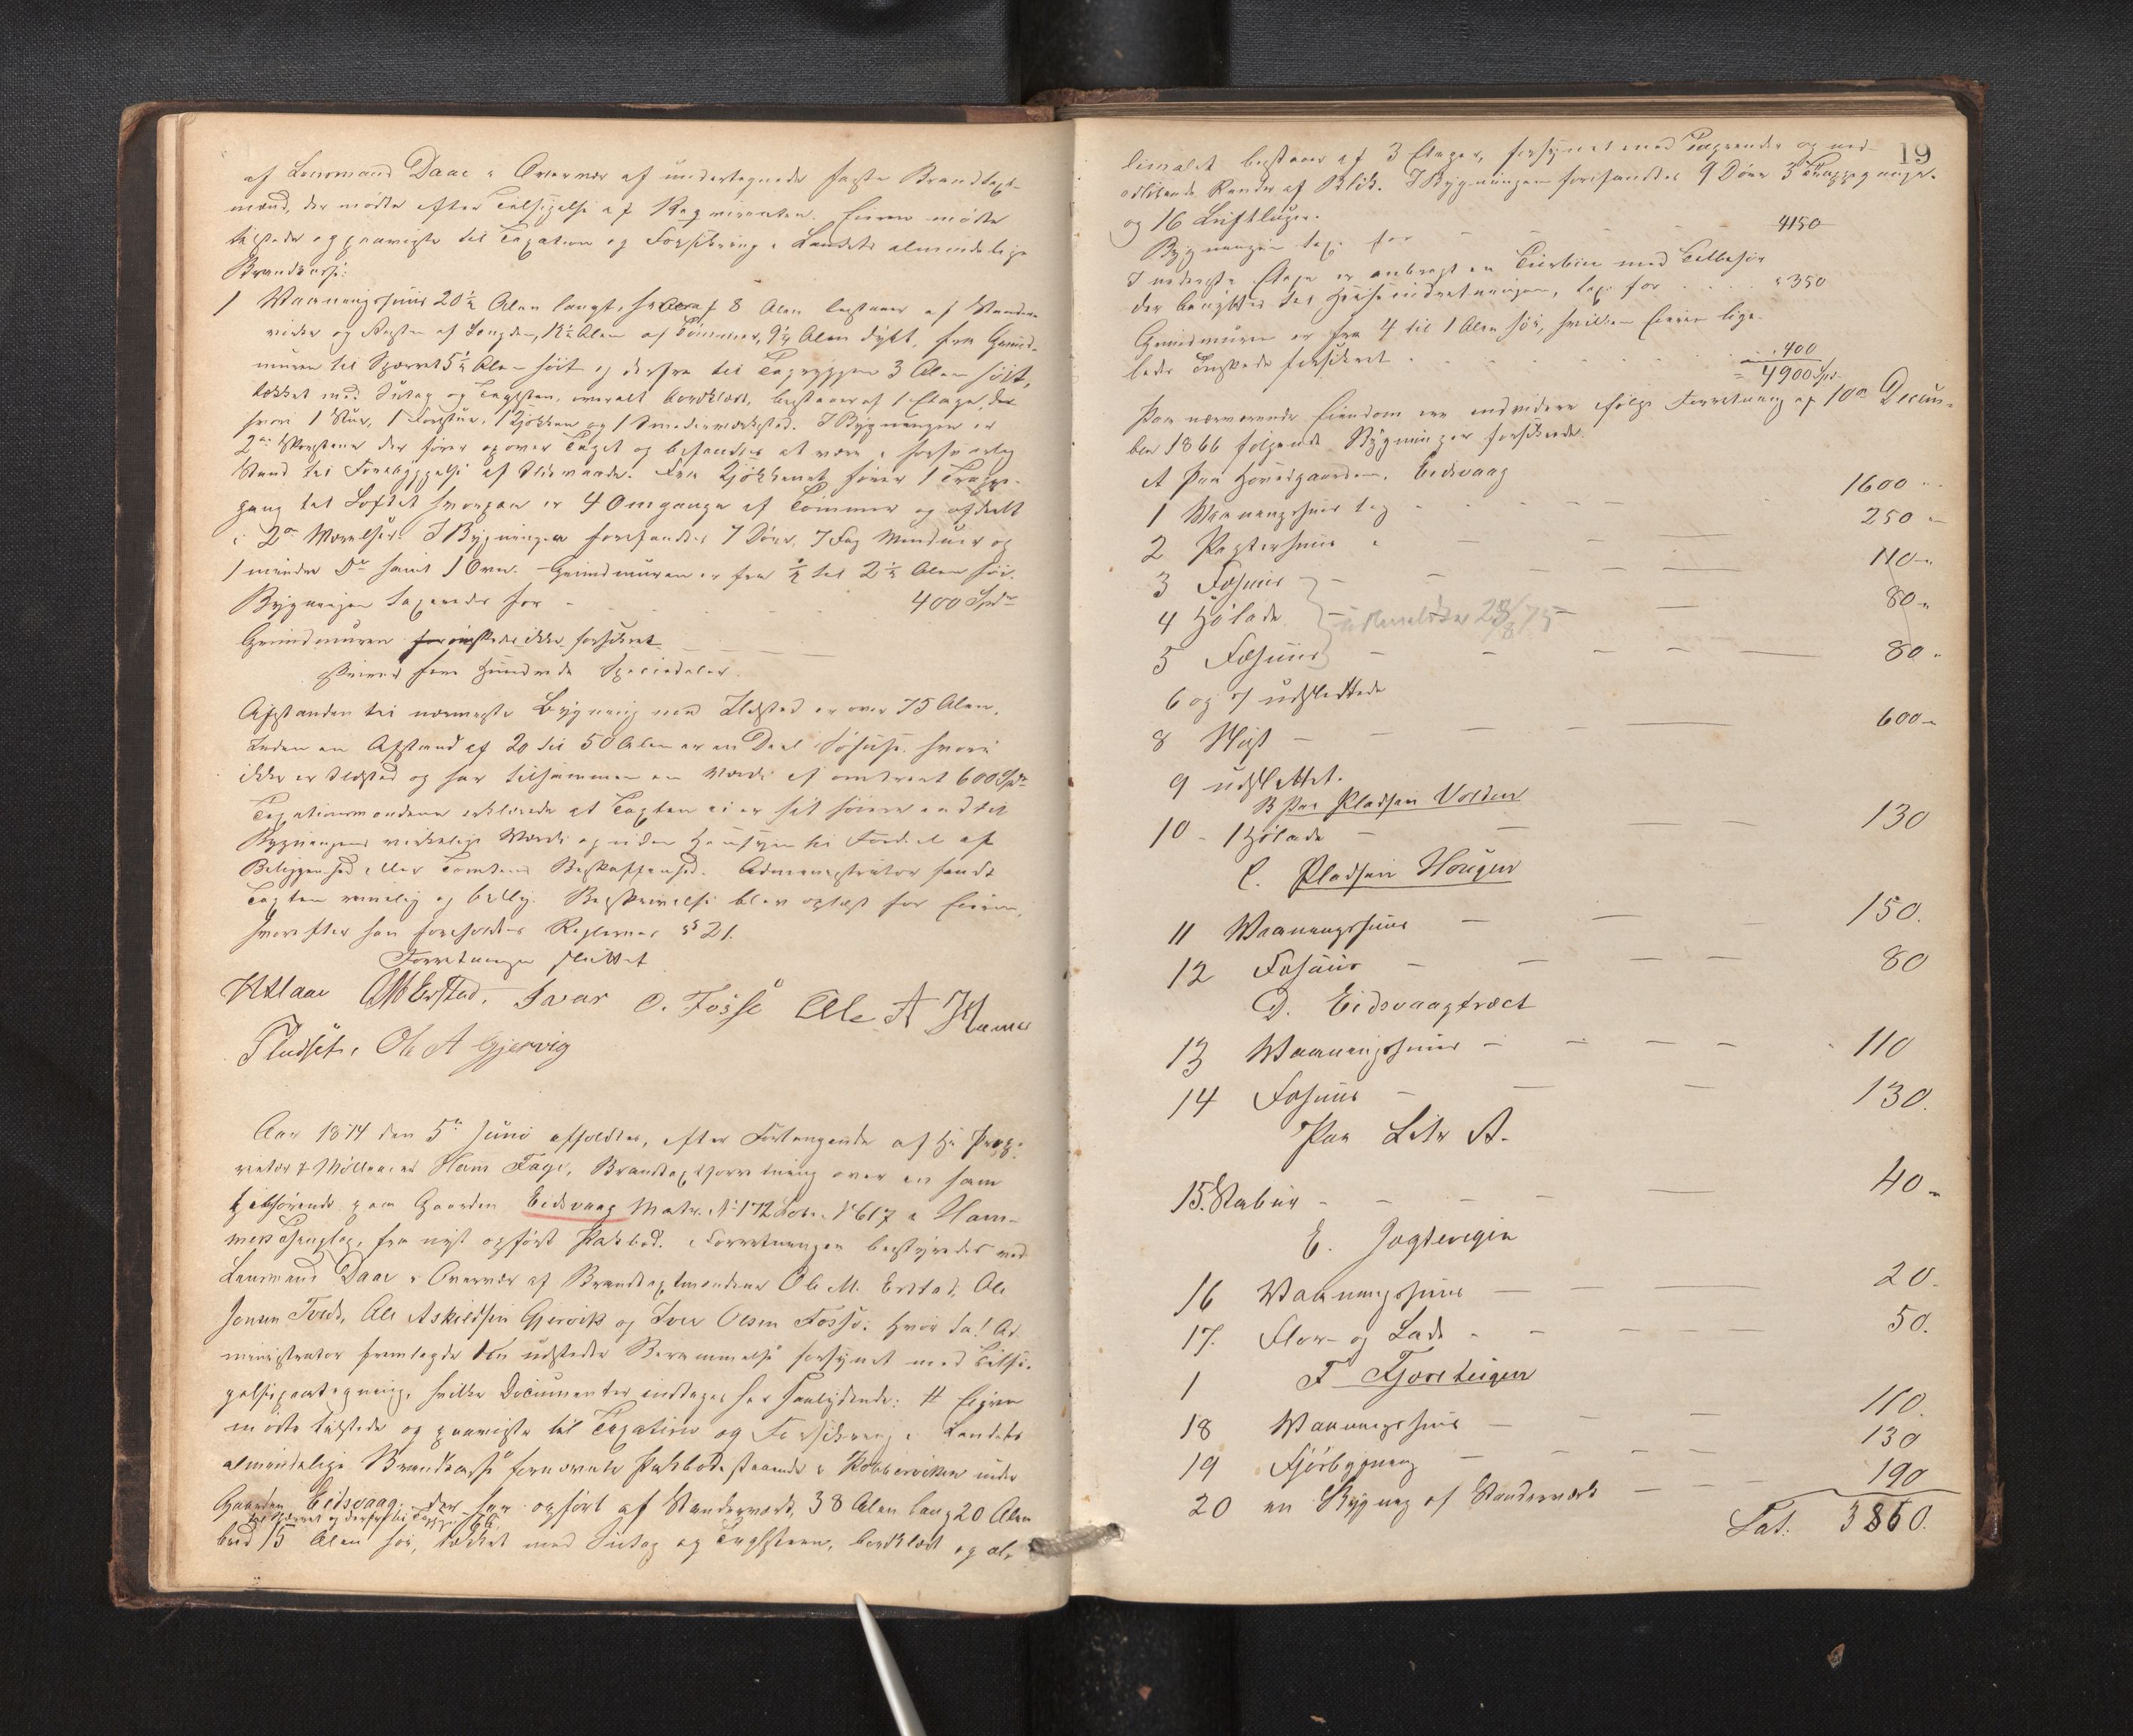 af Lensmand Daae i Overvær af undertegnede faste Brandtaxt-
mænd, der mødte efter Tilsigelse af Reqvirenten. Eieren mødte
tilstede og paaviste til Taxation og Forsikring i Landets almindelige
Brandkasse:
1 Vaaningshuus 20½ Alen langt, hvoraf 8 Alen bestaaer af Stænder-
virke og Resten af Længden, 12½ Alen af Tømmer, 9¼ Alen dybt, fra Grund-
muren til Sperret 5½ Alen høit og derfra til Tagryggen 3 Alen høit,
tækket med Sutag og Tagsten, overalt bordklædt, bestaaer af 1 Etage, der
hvori 1 Stue, 1 Forstue, 1 Kjøkken og 1 Snedkerværksted. I Bygningen er
2de Skorstene der fører op over Taget og befandtes at være i forsvarlig
Stand til Forebyggelse af Ildsvaade. Fra Kjøkkenet fører 1 Trappe-
gang til Loftet hvorpaa er 4 Omgange af Tømmer og afdeelt
i 2de Værelser. I Bygningen forefandtes 7 Døre, 7 Fag Vinduer og
1 mindre Do samt 1 Ovn. Grundmuren er fra ½ til 2½ Alen høi.
Bygningen taxeredes for 400 Spd
Grundmuren ønskedes ikke forsikret
skriver fire Hundrede Speciedaler.
Afstanden til nærmeste Bygning med Ildsted er over 75 Alen.
Inden en Afstand af 20 til 50 Alen er en Deel Søhuse, hvori
ikke er Ildsted og har tilsammen en Værdi af omtrent 600 Spd
Taxationsmændene erklærede at Taxten ei er sat høiere end til
Bygningens virkelige Værdi og uden Hensyn til Fordeel af
Beliggenhed eller Tomtens Beskaffenhed. Administrator fandt
Taxten rimelig og billig. Beskrivelsen blev oplæst for Eieren,
hvorefter han foreholdtes Reglernes § 21.
Forretningen sluttet
Daae OM Erstad. Ivar O. Fosse Ole A
Ole A Gjervig
Aar 1874 den 5te Juni afholdtes, efter Forlangende af Hr Prop-
rietær & Mølleeier Hans Fage, Brandtaxtforretning over en ham
tilhørende paa Gaarden Eidsvaag Matr. No 172 Løbe-No 617 i Ham-
mers Thinglag, fra nyt opført Pakbod. Forretningen bestyredes ved
Lensmand Daae i Overvær af Brandtaxtmændene Ole M. Erstad, Ole
Jensen Tveds, Ole Askildsen Gjervik og Iver Olsen Fosse: Hvor da! Ad-
ministrator fremlagde den udstedte Berammelse forsynet med Tilsi-
gelsespaategning, hvilke Documenter indtages her saalydende: # Eieren
mødte tilstede og paaviste til Taxation og Forsikring i Landets
almindelige Brandkasse fornævnte Pakbod staaende i Kobberviken under
Gaarden Eidsvaag, der har opført af Stænderverk, 38 Alen lang 20 Alen
bred 15 Alen høi, tækket med Sutag og Tagsteen, bordklædt og al-
19
limalet bestaaer af 3 Etager, forsynet med Tagrender og ned-
adløbende Render af Blik. I Bygningen forefandtes 9 Døre 3 Trappegange
og 16 Luftluger.
Bygningen tax. for 4150
I nederste Etage er anbragt en Turbin med Tilbehør
der benyttes til Heiseindretningen, tax. for " 350
Grundmuren er fra 4 til 1 Alen høi, hvilken Eieren lige-
ledes ønskede forsikret 400
= 4900 Spd
Paa nærværende Eiendom ere endvidere ifølge Forretning af 10de Decem-
ber 1866 følgende Bygninger forsikrede
A Paa Hovedgaarden Eidsvaag
1 Vaaningshuus tax. 1600
2 Pagterhuus " 250
3 Fæhuus 110
4 Hølade 80
udmeldte 28/8 75
5 Fæhuus 80
6 og 7 udslettede
8 Nøst 600
9 udslettet.
B Paa Pladsen Volden
10 1 Hølade 130
C. Pladsen Haugen
11 Vaaningshuus 150.
12 Fæhuus 80
D. Eidsvaagtræet
13 Vaaningshuus 110
14 Fæhuus 130.
Paa Litr A.
15. Stabur 40
E. Jagtevigen
16 Vaaningshuus 20.
17. Flor- og Lade 50.
1 F Fjæreteigen
18 Vaaningshuus 110.
19 Fjøsbygning 130
20 en Bygning af Stænderværk 190
Lat. 3860.